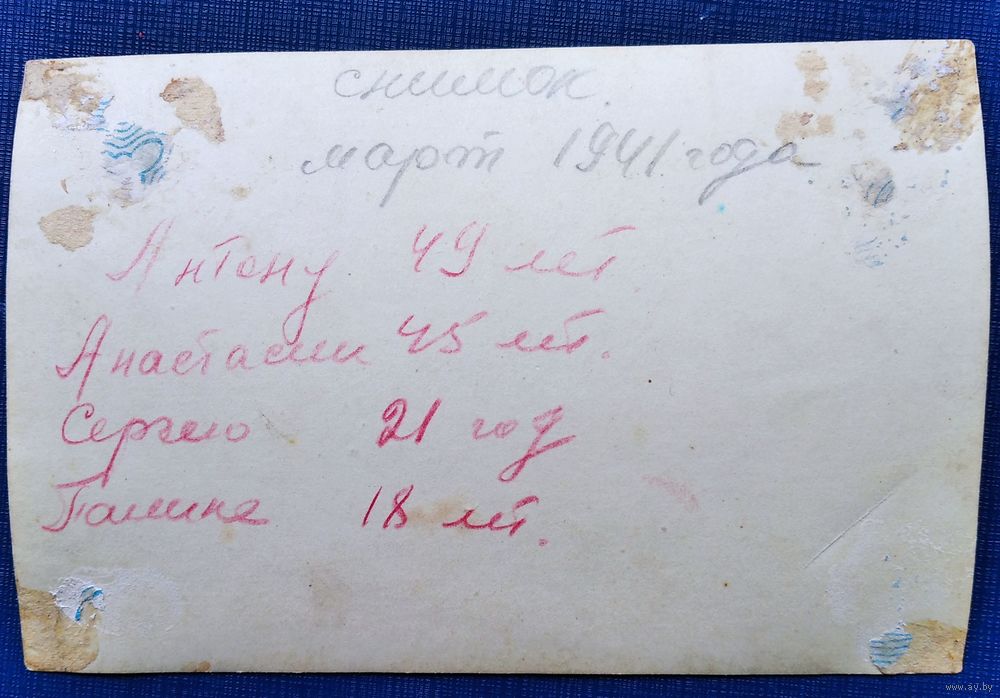 снимок.
март 1941 года
Антону 49 лет
Анастасии 45 лет.
Сергею 21 год
Галине 18 лет.
www.ay.by